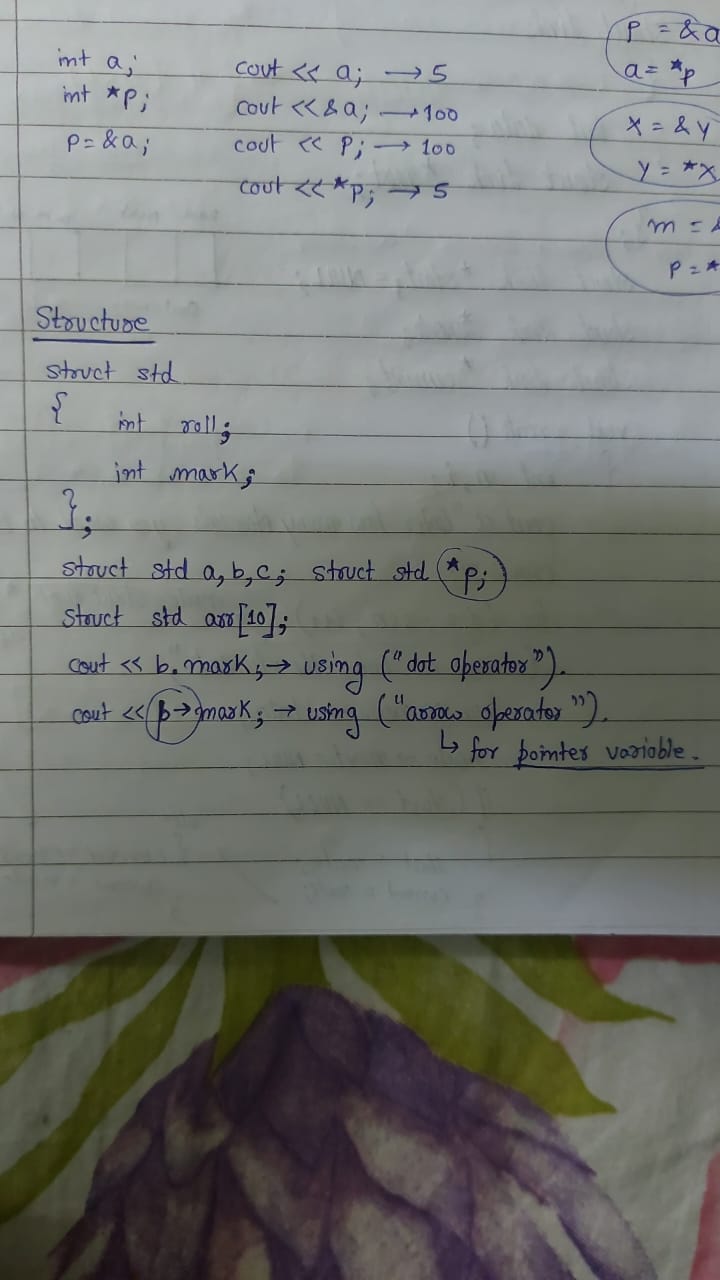 int a;    cout << a; → 5    p = &a
int *p;    cout << &a; → 100    a = *p
p = &a;    cout << p; → 100    x = &y
cout << *p; → 5    y = *x
m =
p = *
Structure
struct std
{ int roll;
int mark;
};
struct std a, b, c; struct std *p;
struct std arr[10];
cout << b.mark; → using ("dot operator").
cout << p→mark; → using ("arrow operator").
↳ for pointer variable.